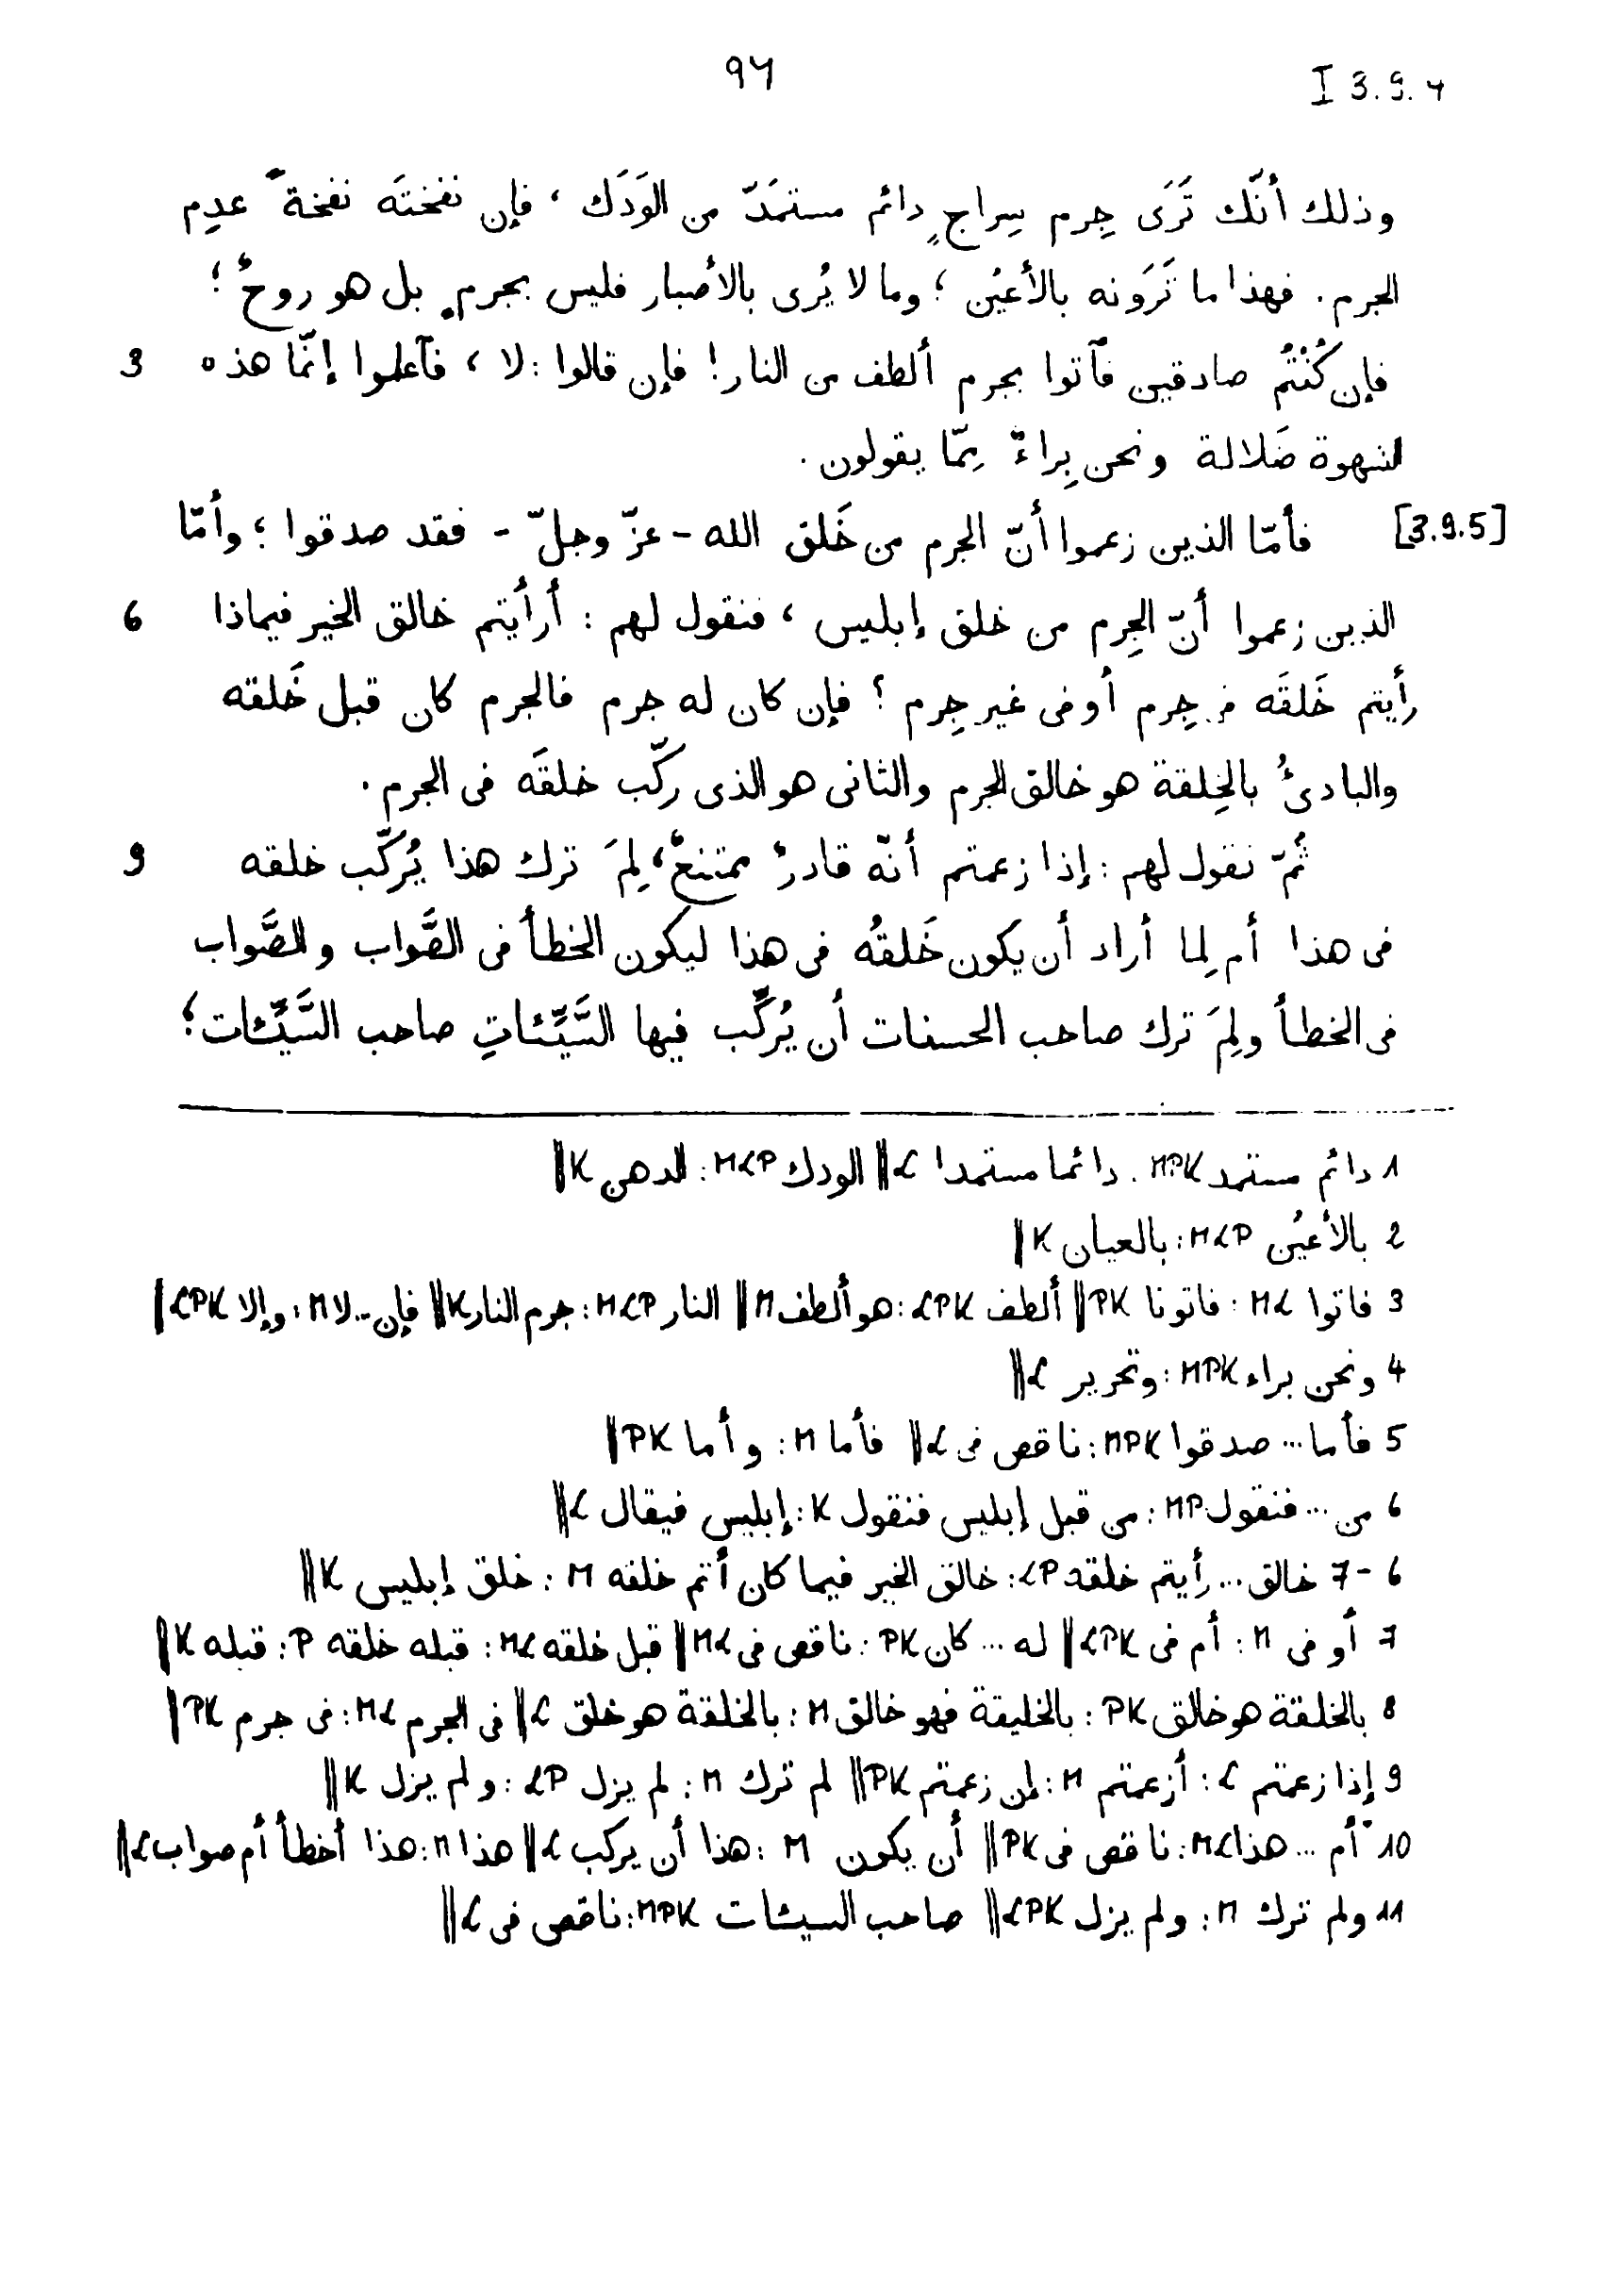 94
I 3.9.4
وذلك أنّك تَرَى جِرم سِراجٍ دائم مستمَدّ من الوَدَك ، فإن نفختَه نفخةً عدِم
الجرم . فهذا ما تَرَونه بالأعيُن ؛ وما لا يُرى بالأصبار فليس بجرم . بل هو روحٌ ؛
3 فإن كُنْتُم صادقين فآتوا بجرم ألطف من النار ! فإن قالوا : لا ، فآعلموا إنّما هذه
لشهوة ضَلالة ونحن بِراءٌ مِمّا يقولون .
[3.9.5] فأمّا الذين زعموا أنّ الجرم من خَلق الله - عزّ وجلّ - فقد صدقوا ؛ وأمّا
6 الذين زعموا أنّ الجِرم من خلق إبليس ، فنقول لهم : أرأيتم خالق الخير فيماذا
رأيتم خَلقَه في جِرم أو في غير جِرم ؟ فإن كان له جرم فالجرم كان قبل خَلقه
والبادئُ بالخِلقة هو خالق الجرم والثانى هو الذى ركّب خلقَه فى الجرم .
9 ثُمّ نقول لهم : إذا زعمتم أنّه قادرٌ ممتنعٌ ، لِمَ ترك هذا يُركّب خلقه
فى هذا أم لِما أراد أن يكون خَلقُه فى هذا ليكون الخطأ فى الصَّواب والصَّواب
فى الخطأ ولِمَ ترك صاحب الحسنات أن يُركِّب فيها السَّيِّئاتِ صاحب السَّيِّئات ؛
1 دائم مستمد MPK : دائما مستمدا L || الودك MLP : الدهن K ||
2 بالأعيُن MLP : بالعيان K ||
3 فاتوا ML : فاتونا PK || ألطف LPK : هو ألطف M || النار MLP : جرم النار K || فإن ... لا M : وإلا LPK ||
4 ونحن براء MPK : وتحرير L ||
5 فأما ... صدقوا MPK : ناقص فى L || فأما M : وأما PK ||
6 من ... فنقول MP : من قبل إبليس فنقول K : إبليس فيقال L ||
6 - 7 خالق ... رأيتم خلقه LP : خالق الخير فيما كان أتم خلقه M : خلق إبليس K ||
7 أو فى M : أم فى LPK || له ... كان PK : ناقص فى ML || قبل خلقه ML : قبله خلقه P : قبله K ||
8 بالخلقة هو خالق PK : بالخليقة فهو خالق M : بالخلقة هو خلق L || فى الجرم ML : فى جرم PK ||
9 إذا زعمتم L : أزعمتم M : إن زعمتم PK || لم ترك M : لم يزل LP : ولم يزل K ||
10 أم ... هذا ML : ناقص فى PK || أن يكون M : هذا أن يركب L || هذا M : هذا أخطأ أم صواب L ||
11 ولم ترك M : ولم يزل LPK || صاحب السيئات MPK : ناقص فى L ||